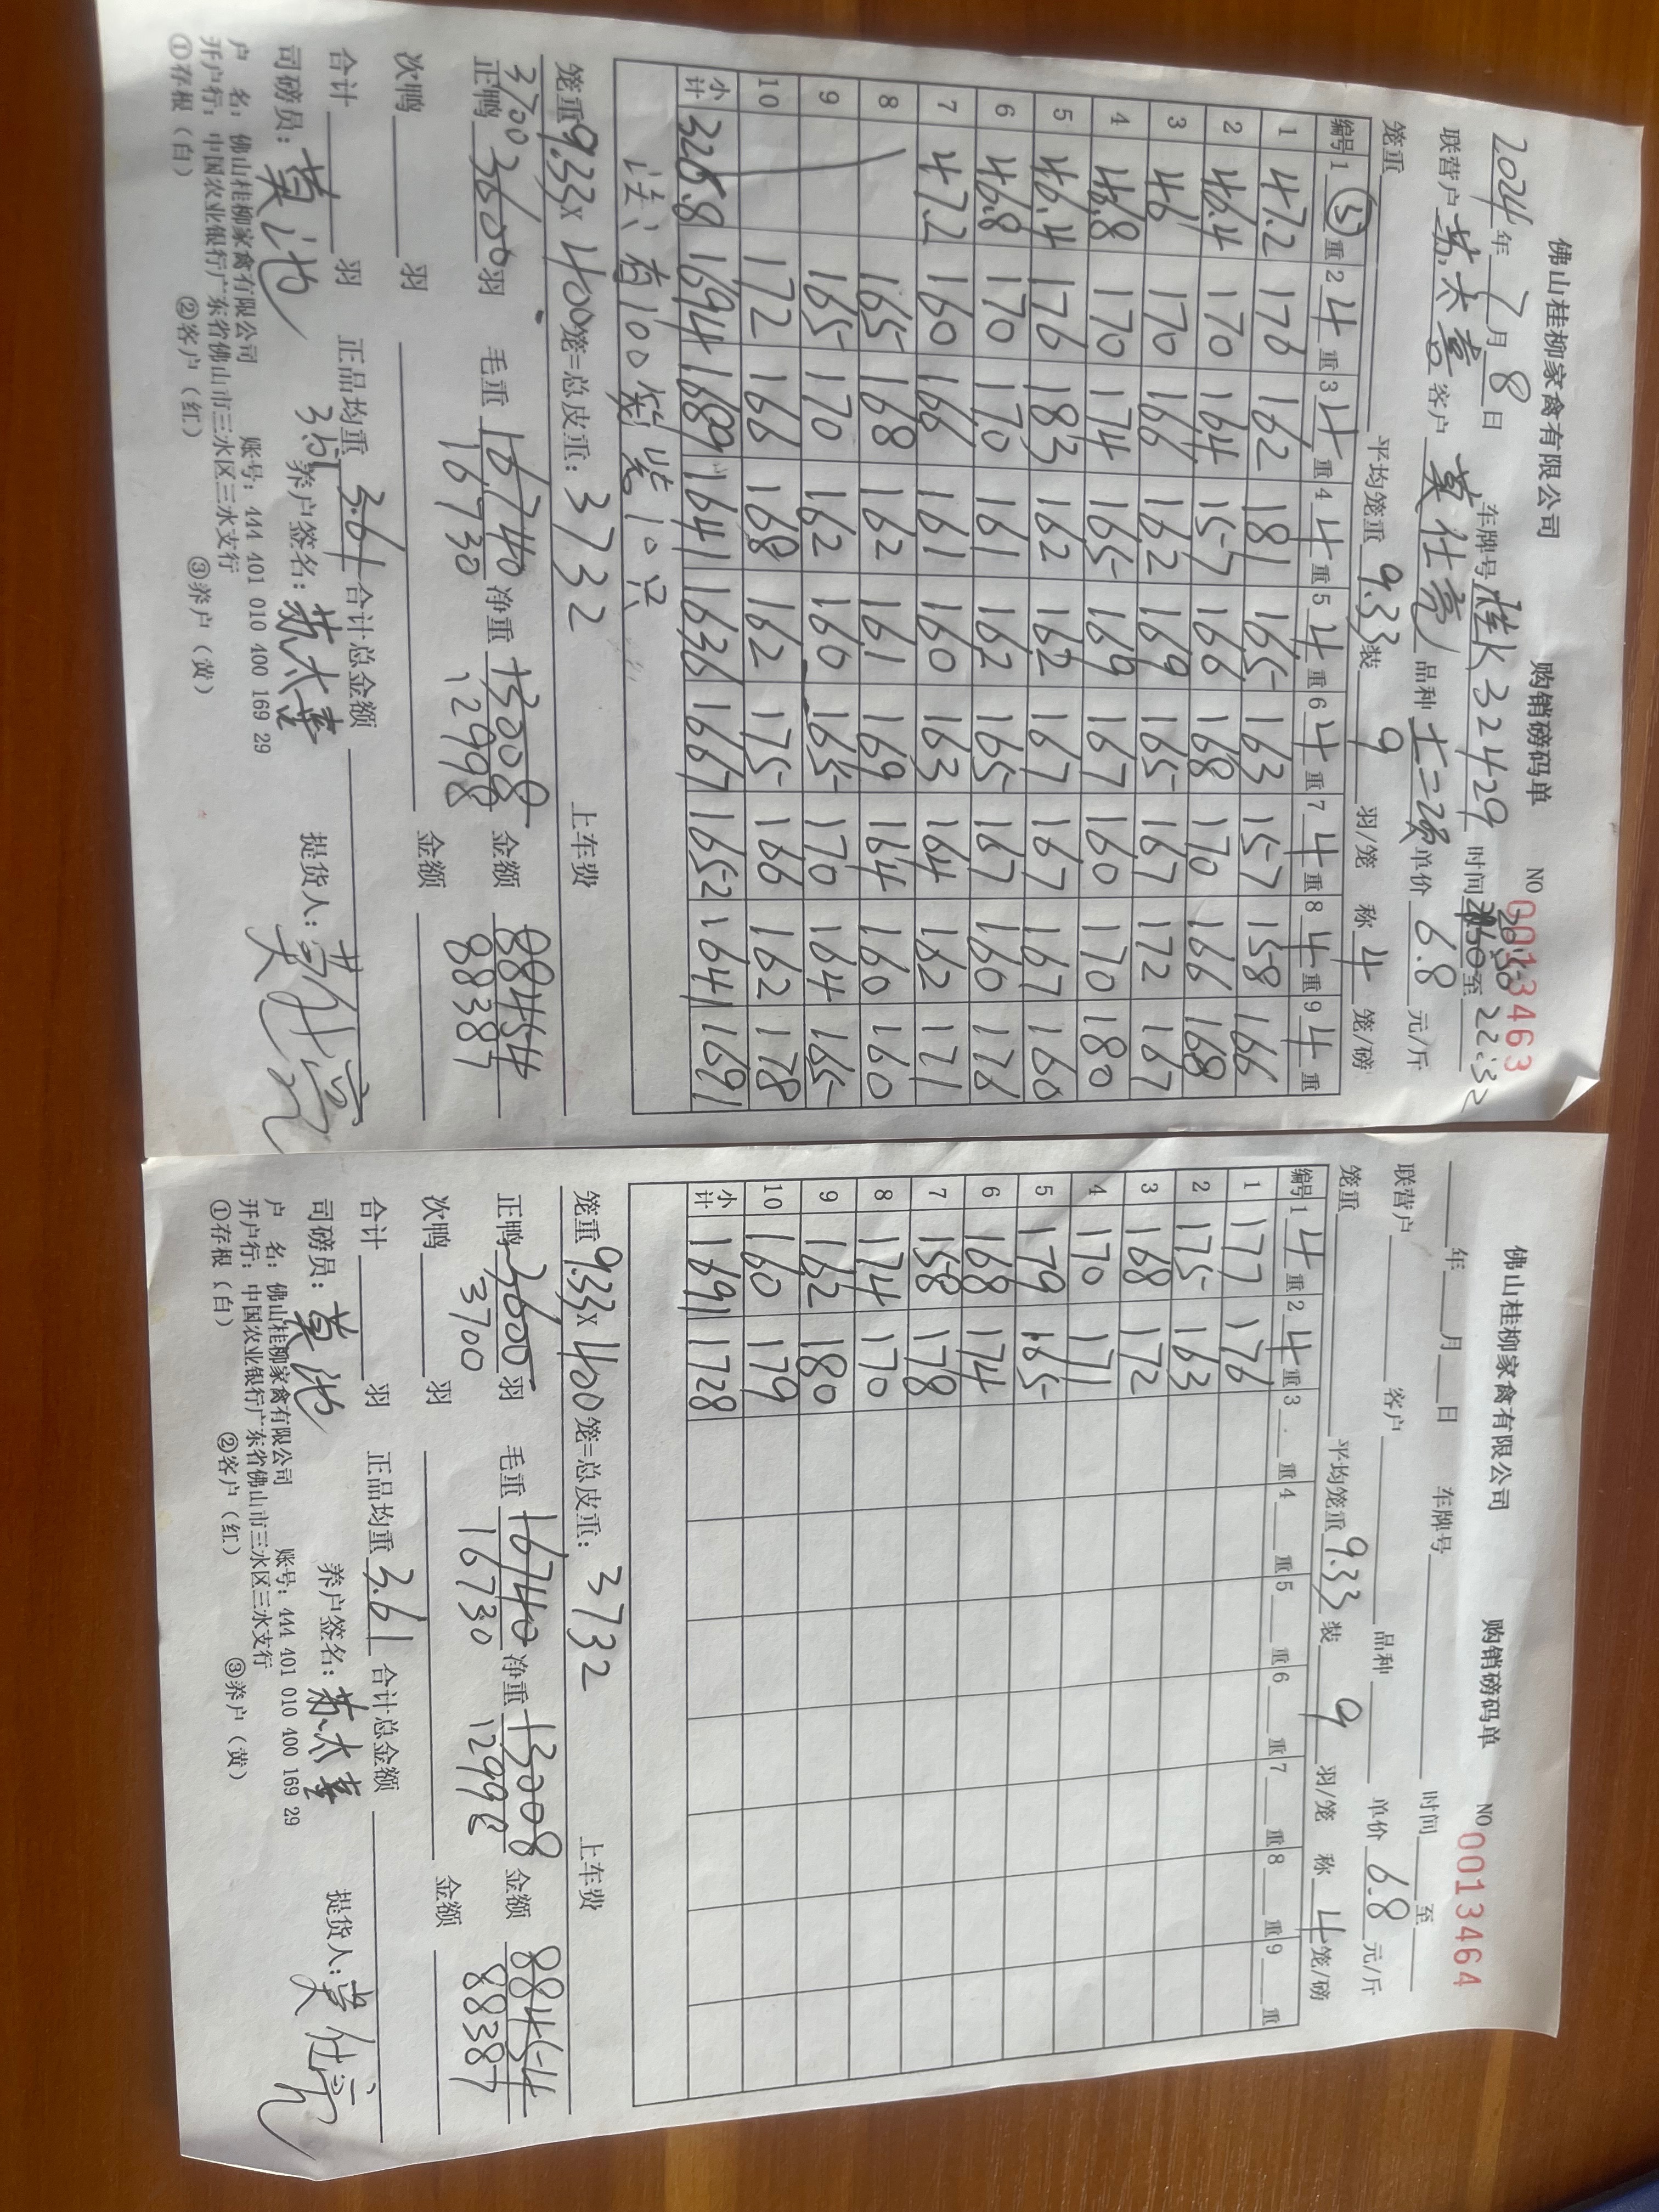 佛山桂柳家禽有限公司 购销磅码单 NO 0013463
2024年7月8日 车牌号桂K32429 时间 20:30至22:32
联营户 苏太喜 客户 莫仕亮 品种 土二 单价 6.8 元/斤
笼重 平均笼重 9.33 装 9 羽/笼 称 4 笼/磅
编号 1 ⑤ 重 2 4 重 3 4 重 4 4 重 5 4 重 6 4 重 7 4 重 8 4 重 9 4 重
1 47.2 176 162 181 165 163 157 158 166
2 46.4 170 164 157 166 168 170 166 168
3 46 170 166 162 169 165 167 172 167
4 46.8 170 174 165 169 167 160 170 180
5 46.4 176 183 162 162 167 167 167 160
6 46.8 170 170 161 162 165 167 160 176
7 47.2 160 166 161 160 163 164 162 171
8 165 168 162 161 169 164 160 160
9 165 170 162 160 165 170 164 165
10 172 166 168 162 175 166 162 178
小计 326.8 1694 1689 1641 1636 1667 1652 1641 1691
注: 有100笼装10只
笼重 9.33 x 400 笼=总皮重: 3732 上车费
正鸭 3600 羽 毛重 16740 净重 13008 金额 88454
3700 16730 12998 88387
次鸭 羽 金额
合计 羽 正品均重 3.61 合计总金额
3.51
司磅员: 莫池 养户签名: 苏太喜 提货人: 莫仕亮
户 名: 佛山桂柳家禽有限公司 账号: 444 401 010 400 169 29
开户行: 中国农业银行广东省佛山市三水区三水支行
①存根（白） ②客户（红） ③养户（黄）
佛山桂柳家禽有限公司 购销磅码单 NO 0013464
年 月 日 车牌号 时间 至
联营户 客户 品种 单价 6.8 元/斤
笼重 平均笼重 9.33 装 9 羽/笼 称 4 笼/磅
编号 1 4 重 2 4 重 3 重 4 重 5 重 6 重 7 重 8 重 9 重
1 177 176
2 175 163
3 168 172
4 170 171
5 179 165
6 168 174
7 158 178
8 174 170
9 162 180
10 160 179
小计 1691 1728
笼重 9.33 x 400 笼=总皮重: 3732 上车费
正鸭 3600 羽 毛重 16740 净重 13008 金额 88454
3700 16730 12998 88387
次鸭 羽 金额
合计 羽 正品均重 3.61 合计总金额
司磅员: 莫池 养户签名: 苏太喜 提货人: 莫仕亮
户 名: 佛山桂柳家禽有限公司 账号: 444 401 010 400 169 29
开户行: 中国农业银行广东省佛山市三水区三水支行
①存根（白） ②客户（红） ③养户（黄）